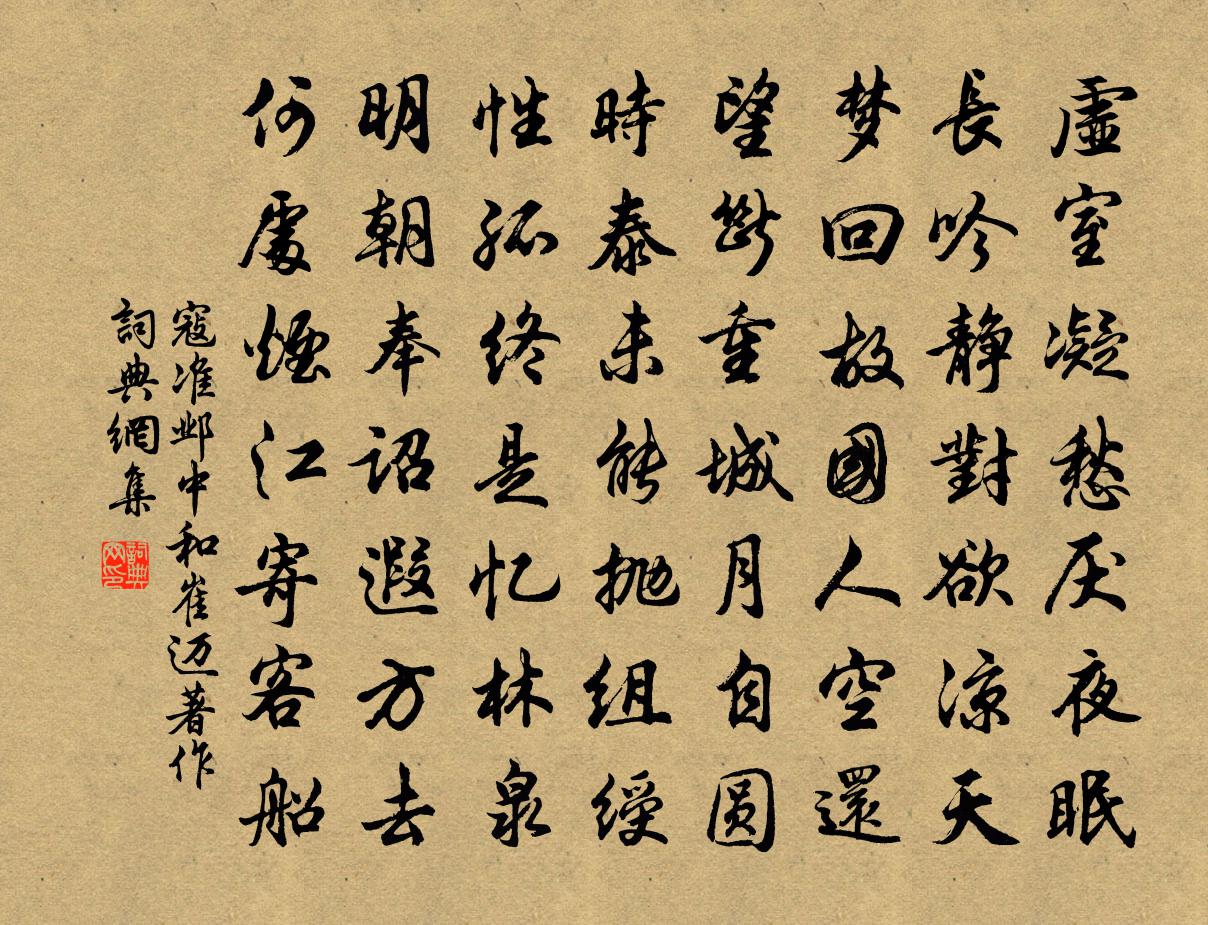 虛室凝愁厌夜眠
長吟靜對欲凉天
梦回故國人空還
望斷重城月自圆
時泰未能抛組綬
性孤终是忆林泉
明朝奉詔遐方去
何處煙江寄客船
寇准邺中和崔迈著作
詞典網集
詞典
网印